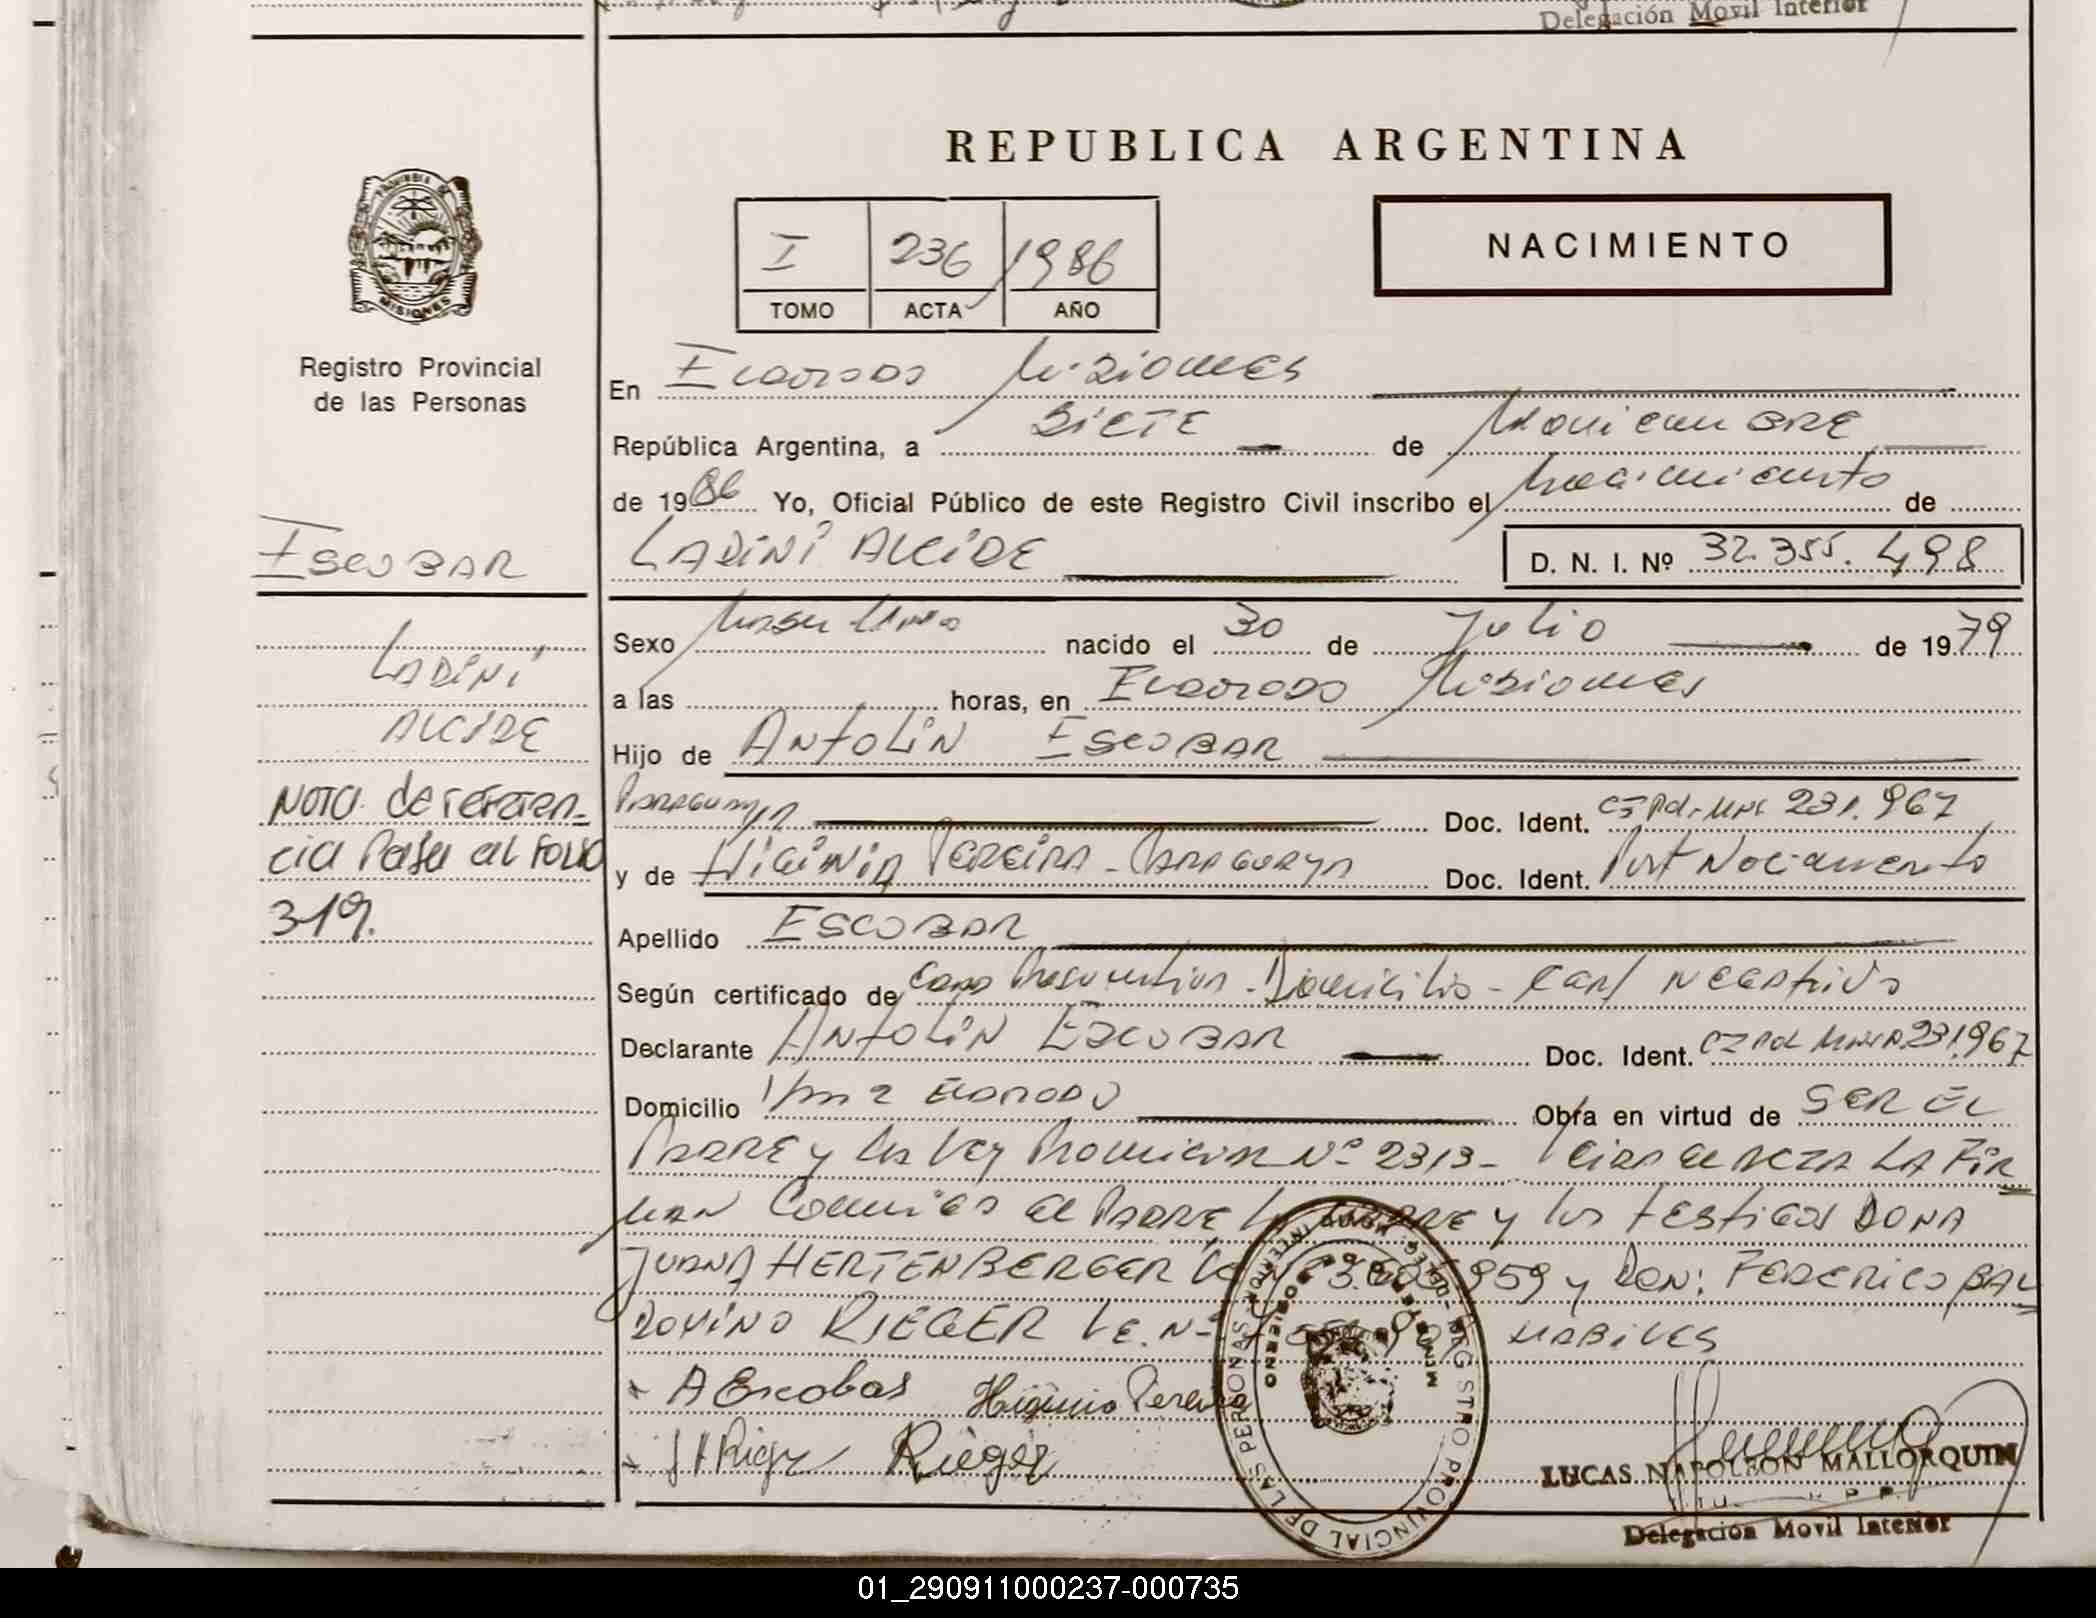 Delegación Movil Interior
REPUBLICA ARGENTINA
PROVINCIA DE
MISIONES
I 236 1986
TOMO ACTA AÑO
NACIMIENTO
Registro Provincial
de las Personas
En Eldorado Misiones
República Argentina, a SIETE de Noviembre
de 1986 Yo, Oficial Público de este Registro Civil inscribo el Nacimiento de
ESCOBAR
LADINI ALCIDE D. N. I. Nº 32.355.498
Sexo Masculino nacido el 30 de Julio de 1979
LADINI
a las horas, en Eldorado Misiones
ALCIDE
Hijo de ANTOLIN ESCOBAR
Nota de referen-
cia Pasa al Folio
319.
Paraguaya Doc. Ident. CI Pol. Mnes 231.967
y de HIGINIA PEREIRA - PARAGUAYA Doc. Ident. Part Nacimiento
Apellido ESCOBAR
Según certificado de Edad Presuntiva - Domicilio - Cert Negativo
Declarante ANTOLIN ESCOBAR Doc. Ident. CI Pol 231967
Domicilio Km 2 ELDORADO Obra en virtud de SER EL
PADRE y la Ley Provincial Nº 2313- LA FIR
MAN Conmigo el PADRE LA MADRE y los testigos DONA
JUANA HERTENBERGER 959 y DON: FEDERICO BAL
DOVINO RIEGER L.E. N- HABILES
A Escobar Higinia Pereira
J H Rieger Rieger
REGISTRO PROVINCIAL DE LAS PERSONAS
DELEG. MOVIL INTERIOR
MINISTERIO DE GOBIERNO
LUCAS NAPOLEON MALLORQUIN
Delegación Movil Interior
01_290911000237-000735